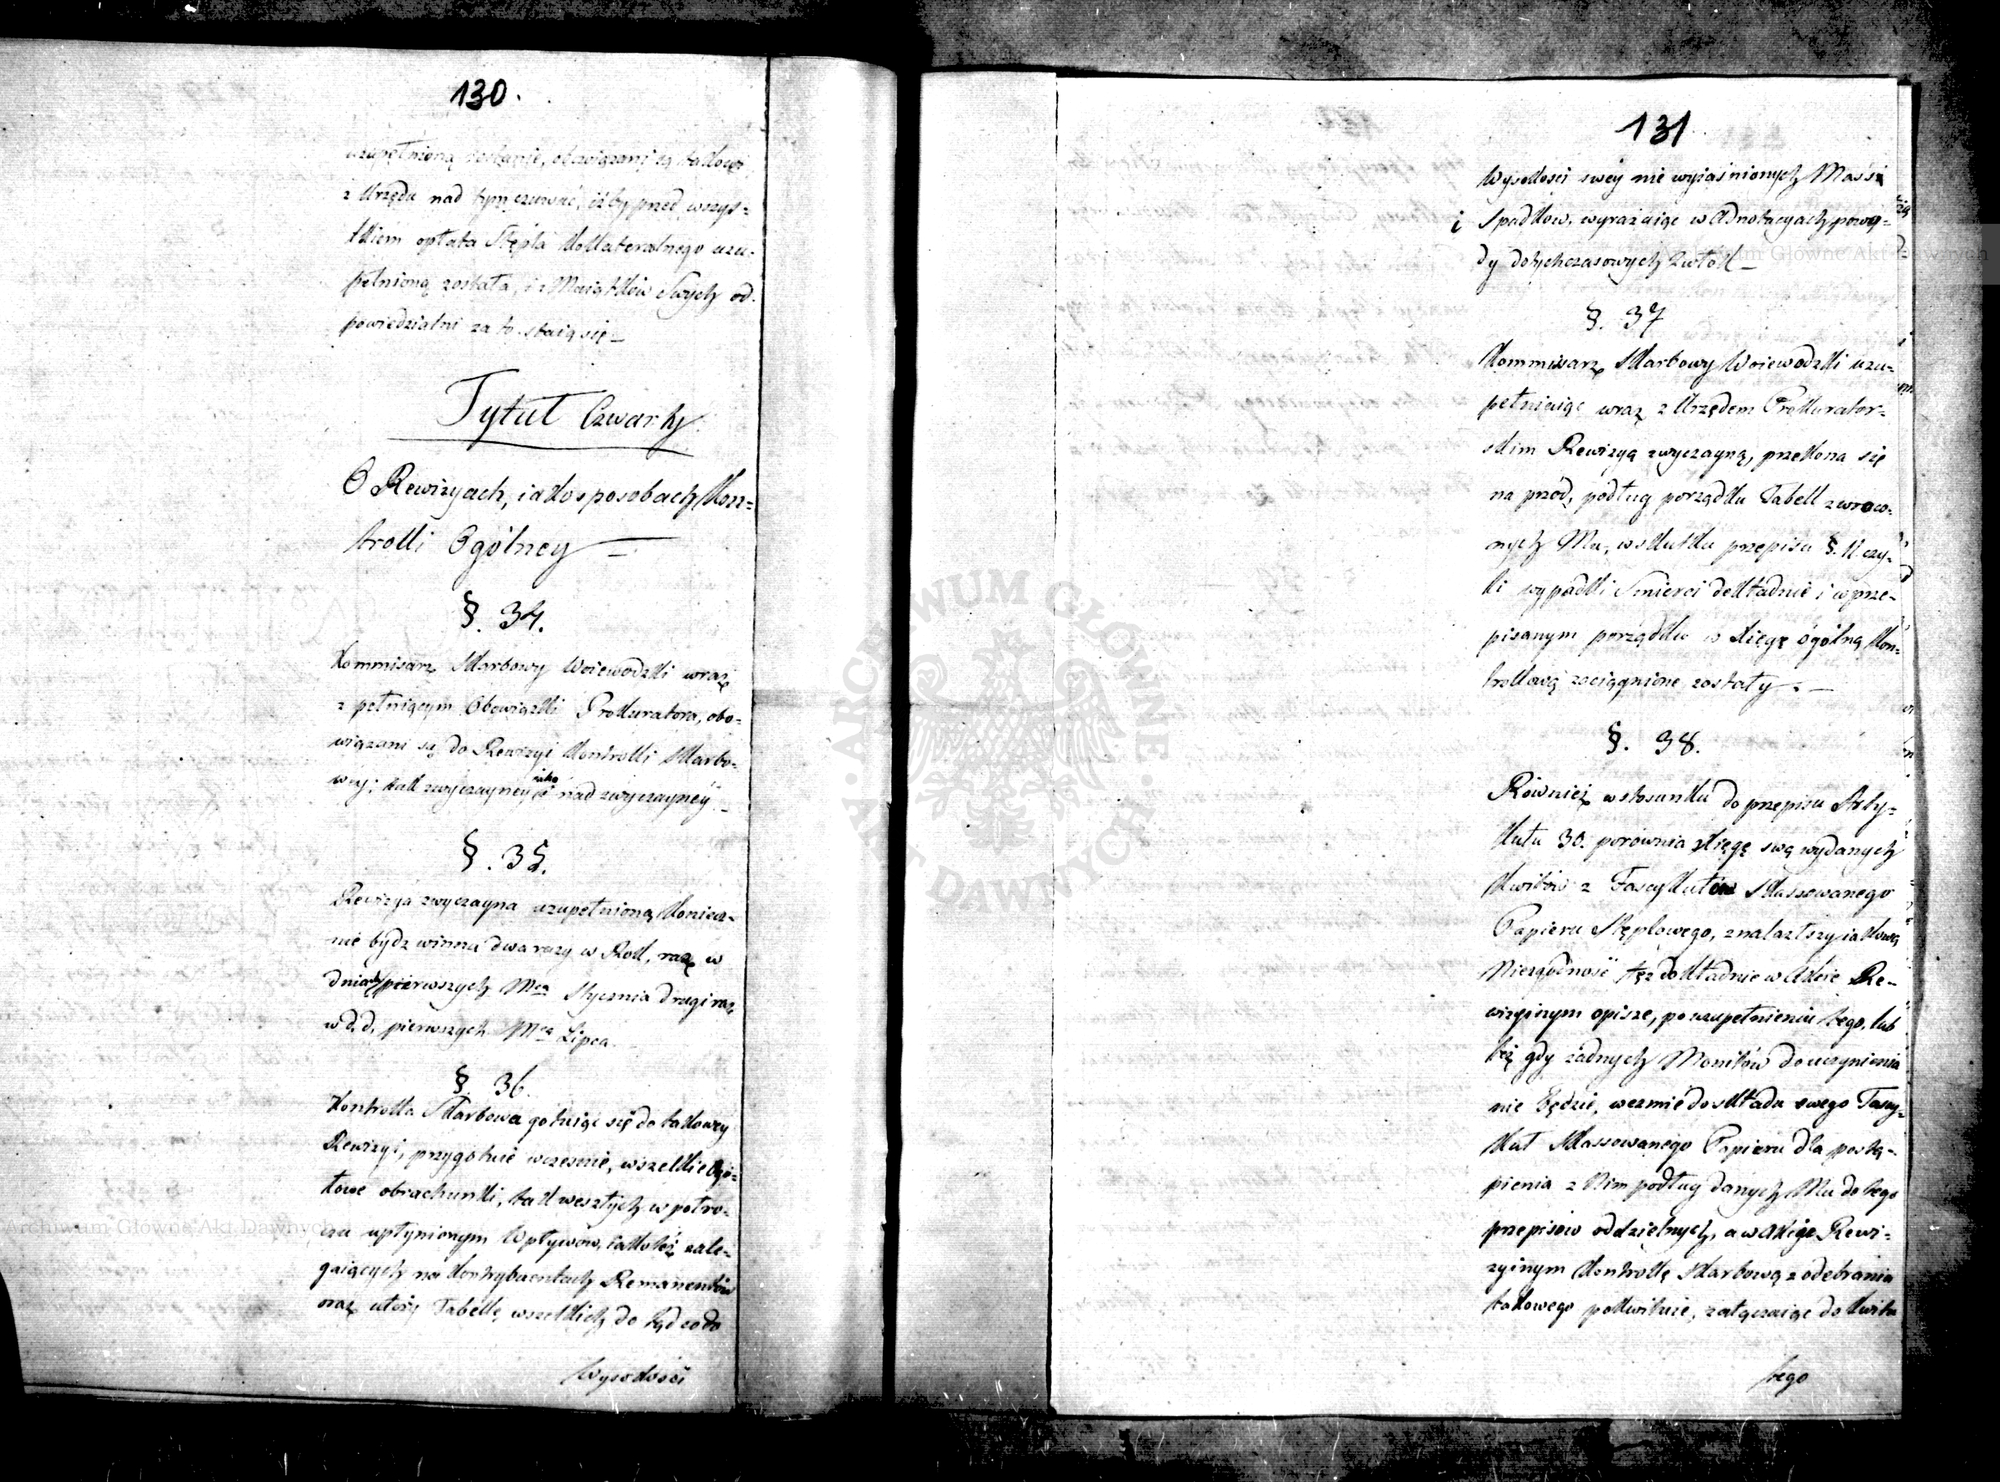 130.
uzupełnioną zostanie, obowiązani są takowe
z Urzędu nad tym czuwać, iżby przed wszys-
tkiem opłata Stępla kollateralnego uzu-
pełnioną została, i z Maiątków Swych od-
powiedzialni za to staią się
Tytuł Czwarty
O Rewizyach, iako sposobach Kon-
trolli Ogólney
§. 34.
Kommisarz Skarbowy Woiewodzki wraz
z pełniącym Obowiązki Prokuratora, obo-
wiązani są do Rewizyi Kontrolli Skarbo-
wey; tak zwyczayney iako nad zwyczayney.
§. 35.
Rewizya zwyczayna uzupełnioną koniecz-
nie bydz winna dwa razy w Rok, raz w
dniach pierwszych Mca Stycznia drugi raz
w d. d. pierwszych Mca Lipca.
§. 36.
Kontrolla Skarbowa gotuiąc się do takowey
Rewizyi, przygotuie wcześnie, wszelkie Ogó-
łowe obrachunki, tak weszłych w półro-
czu upłynionym Wpływów, iakoteż zale-
gaiących na Kontrybuentach Remanentów
oraz ułoży Tabellę wszelkich do tąd co do
Wysokości
131
Wysokości swey nie wyiaśnionych Mass
i Spadkow, wyrażaiąc w Adnotacyach powo-
dy dotychczasowych zwłok
§. 37
Kommisarz Skarbowy Woiewodzki uzu-
pełniaiąc wraz z Urzędem Prokurator-
skim Rewizyą zwyczayną, przekona się
na przód, podług porządku Tabell zwróco-
nych Mu, w skutku przepisu §. 11 czy-
li wypadki Smierci dokładnie i w prze-
pisanym porządku w Xięgę ogólną Kon-
trollową zaciągnione zostały.
§. 38.
Rownież w stosunku do przepisu Arty-
kułu 30. porówna Xięgę swą wydanych
Kwitów z Fascykułem Skassowanego
Papieru Stęplowego, znalazłszy iakową
Niezgodność tęż dokładnie w Akcie Re-
wizyinym opisze, po uzupełnieniu tego, lub
też gdy żadnych Monitów do uczynienia
nie będzie, weźmie do składu swego Fascy-
kuł Skassowanego Papieru dla postą-
pienia z Nim podług danych Mu do tego
przepisow oddzielnych, a w Akcie Rewi-
zyinym Kontrollę Skarbową z odebrania
takowego pokwituie, załączaiąc do Kwitu
tego
ARCHIWUM GŁÓWNE AKT DAWNYCH
Archiwum Główne Akt Dawnych
Archiwum Główne Akt Dawnych